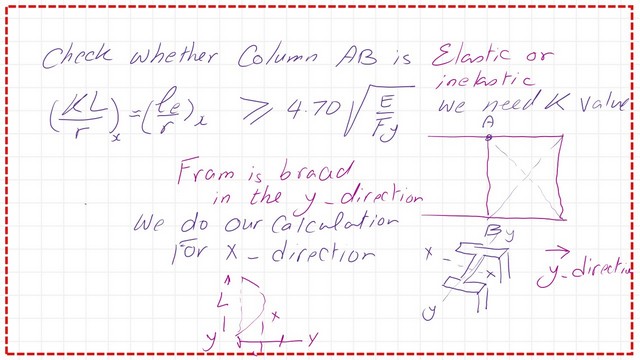 Check whether Column AB is Elastic or
inelastic
(KL/r)x = (le/r)x ≥ 4.70 √(E/Fy)
we need K value
A
Fram is braad
in the y_direction
We do our Calculation
For X_direction
B
y
x
x
y
y_directi
L
x
y
y